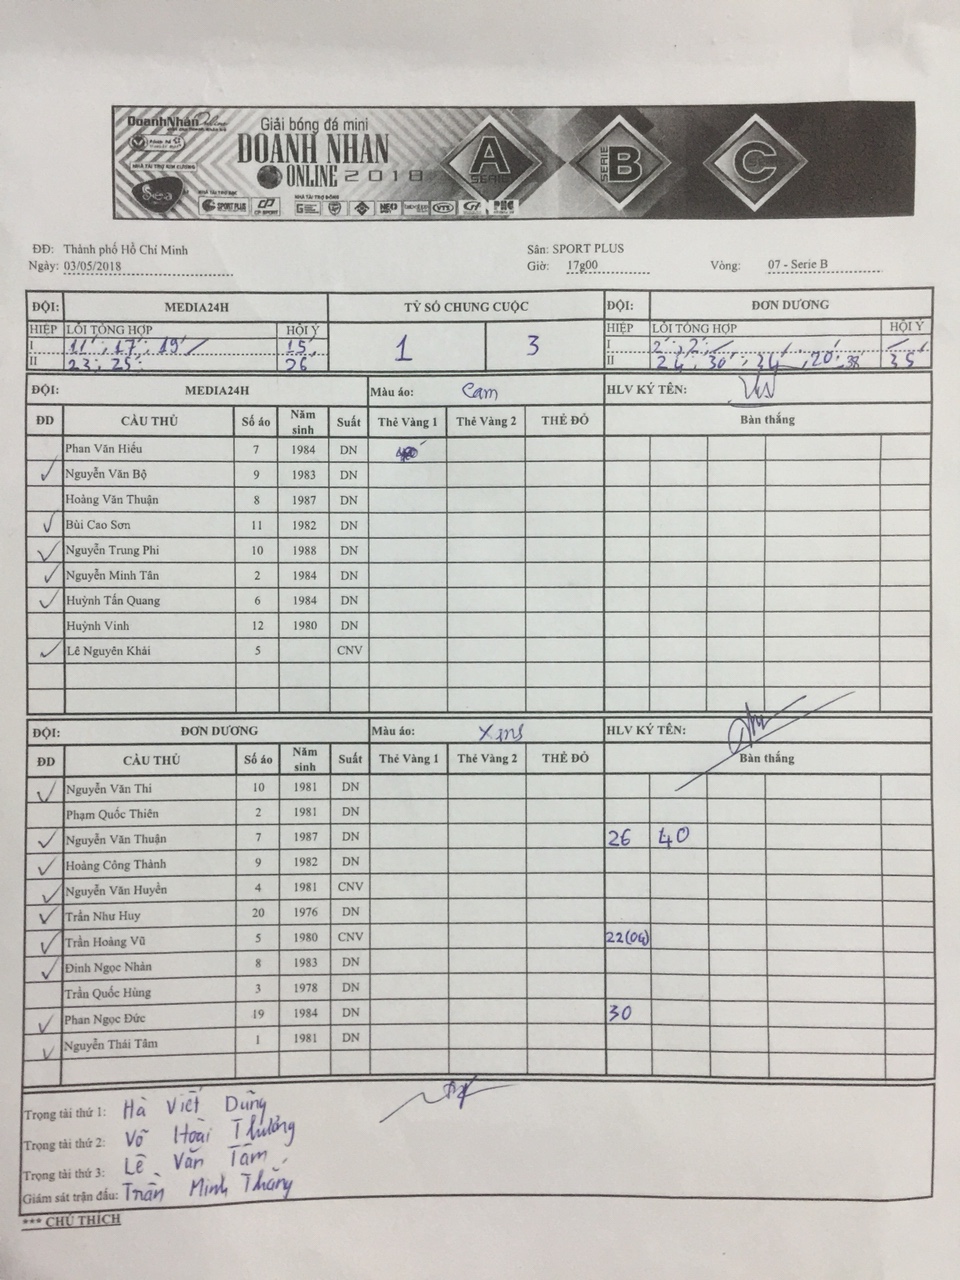 DoanhNhânOnline
Giải bóng đá mini
DOANH NHAN
ONLINE 2018
A SERIE
SERIE B
C
NHÀ TÀI TRỢ KIM CƯƠNG
Sea
NHÀ TÀI TRỢ BẠC
SPORT PLUS CP SPORT
NHÀ TÀI TRỢ ĐỒNG
NEO VTS PHG
ĐĐ: Thành phố Hồ Chí Minh Sân: SPORT PLUS
Ngày: 03/05/2018 Giờ: 17g00 Vòng: 07 - Serie B
ĐỘI: MEDIA24H TỶ SỐ CHUNG CUỘC ĐỘI: ĐƠN DƯƠNG
HIỆP LỖI TỔNG HỢP HỘI Ý 1 3 HIỆP LỖI TỔNG HỢP HỘI Ý
I 11' ; 17' ; 19' 15' I 2' ; 2'
II 23' ; 25' 26 II 24' ; 30' ; 34' , 20' 38' 35'
ĐỘI: MEDIA24H Màu áo: Cam HLV KÝ TÊN:
ĐD CẦU THỦ Số áo Năm sinh Suất Thẻ Vàng 1 Thẻ Vàng 2 THẺ ĐỎ Bàn thắng
Phan Văn Hiếu 7 1984 DN
Nguyễn Văn Bộ 9 1983 DN
Hoàng Văn Thuận 8 1987 DN
Bùi Cao Sơn 11 1982 DN
Nguyễn Trung Phi 10 1988 DN
Nguyễn Minh Tân 2 1984 DN
Huỳnh Tấn Quang 6 1984 DN
Huỳnh Vinh 12 1980 DN
Lê Nguyên Khải 5 CNV
ĐỘI: ĐƠN DƯƠNG Màu áo: HLV KÝ TÊN:
ĐD CẦU THỦ Số áo Năm sinh Suất Thẻ Vàng 1 Thẻ Vàng 2 THẺ ĐỎ Bàn thắng
Nguyễn Văn Thi 10 1981 DN
Phạm Quốc Thiên 2 1981 DN
Nguyễn Văn Thuận 7 1987 DN 26 40
Hoàng Công Thành 9 1982 DN
Nguyễn Văn Huyền 4 1981 CNV
Trần Như Huy 20 1976 DN
Trần Hoàng Vũ 5 1980 CNV 22(OG)
Đinh Ngọc Nhàn 8 1983 DN
Trần Quốc Hùng 3 1978 DN
Phan Ngọc Đức 19 1984 DN 30
Nguyễn Thái Tâm 1 1981 DN
Trọng tài thứ 1: Hà Viết Dũng
Trọng tài thứ 2: Võ Hoài Thưởng
Trọng tài thứ 3: Lê Văn Tâm
Giám sát trận đấu: Trần Minh Thắng
*** CHÚ THÍCH